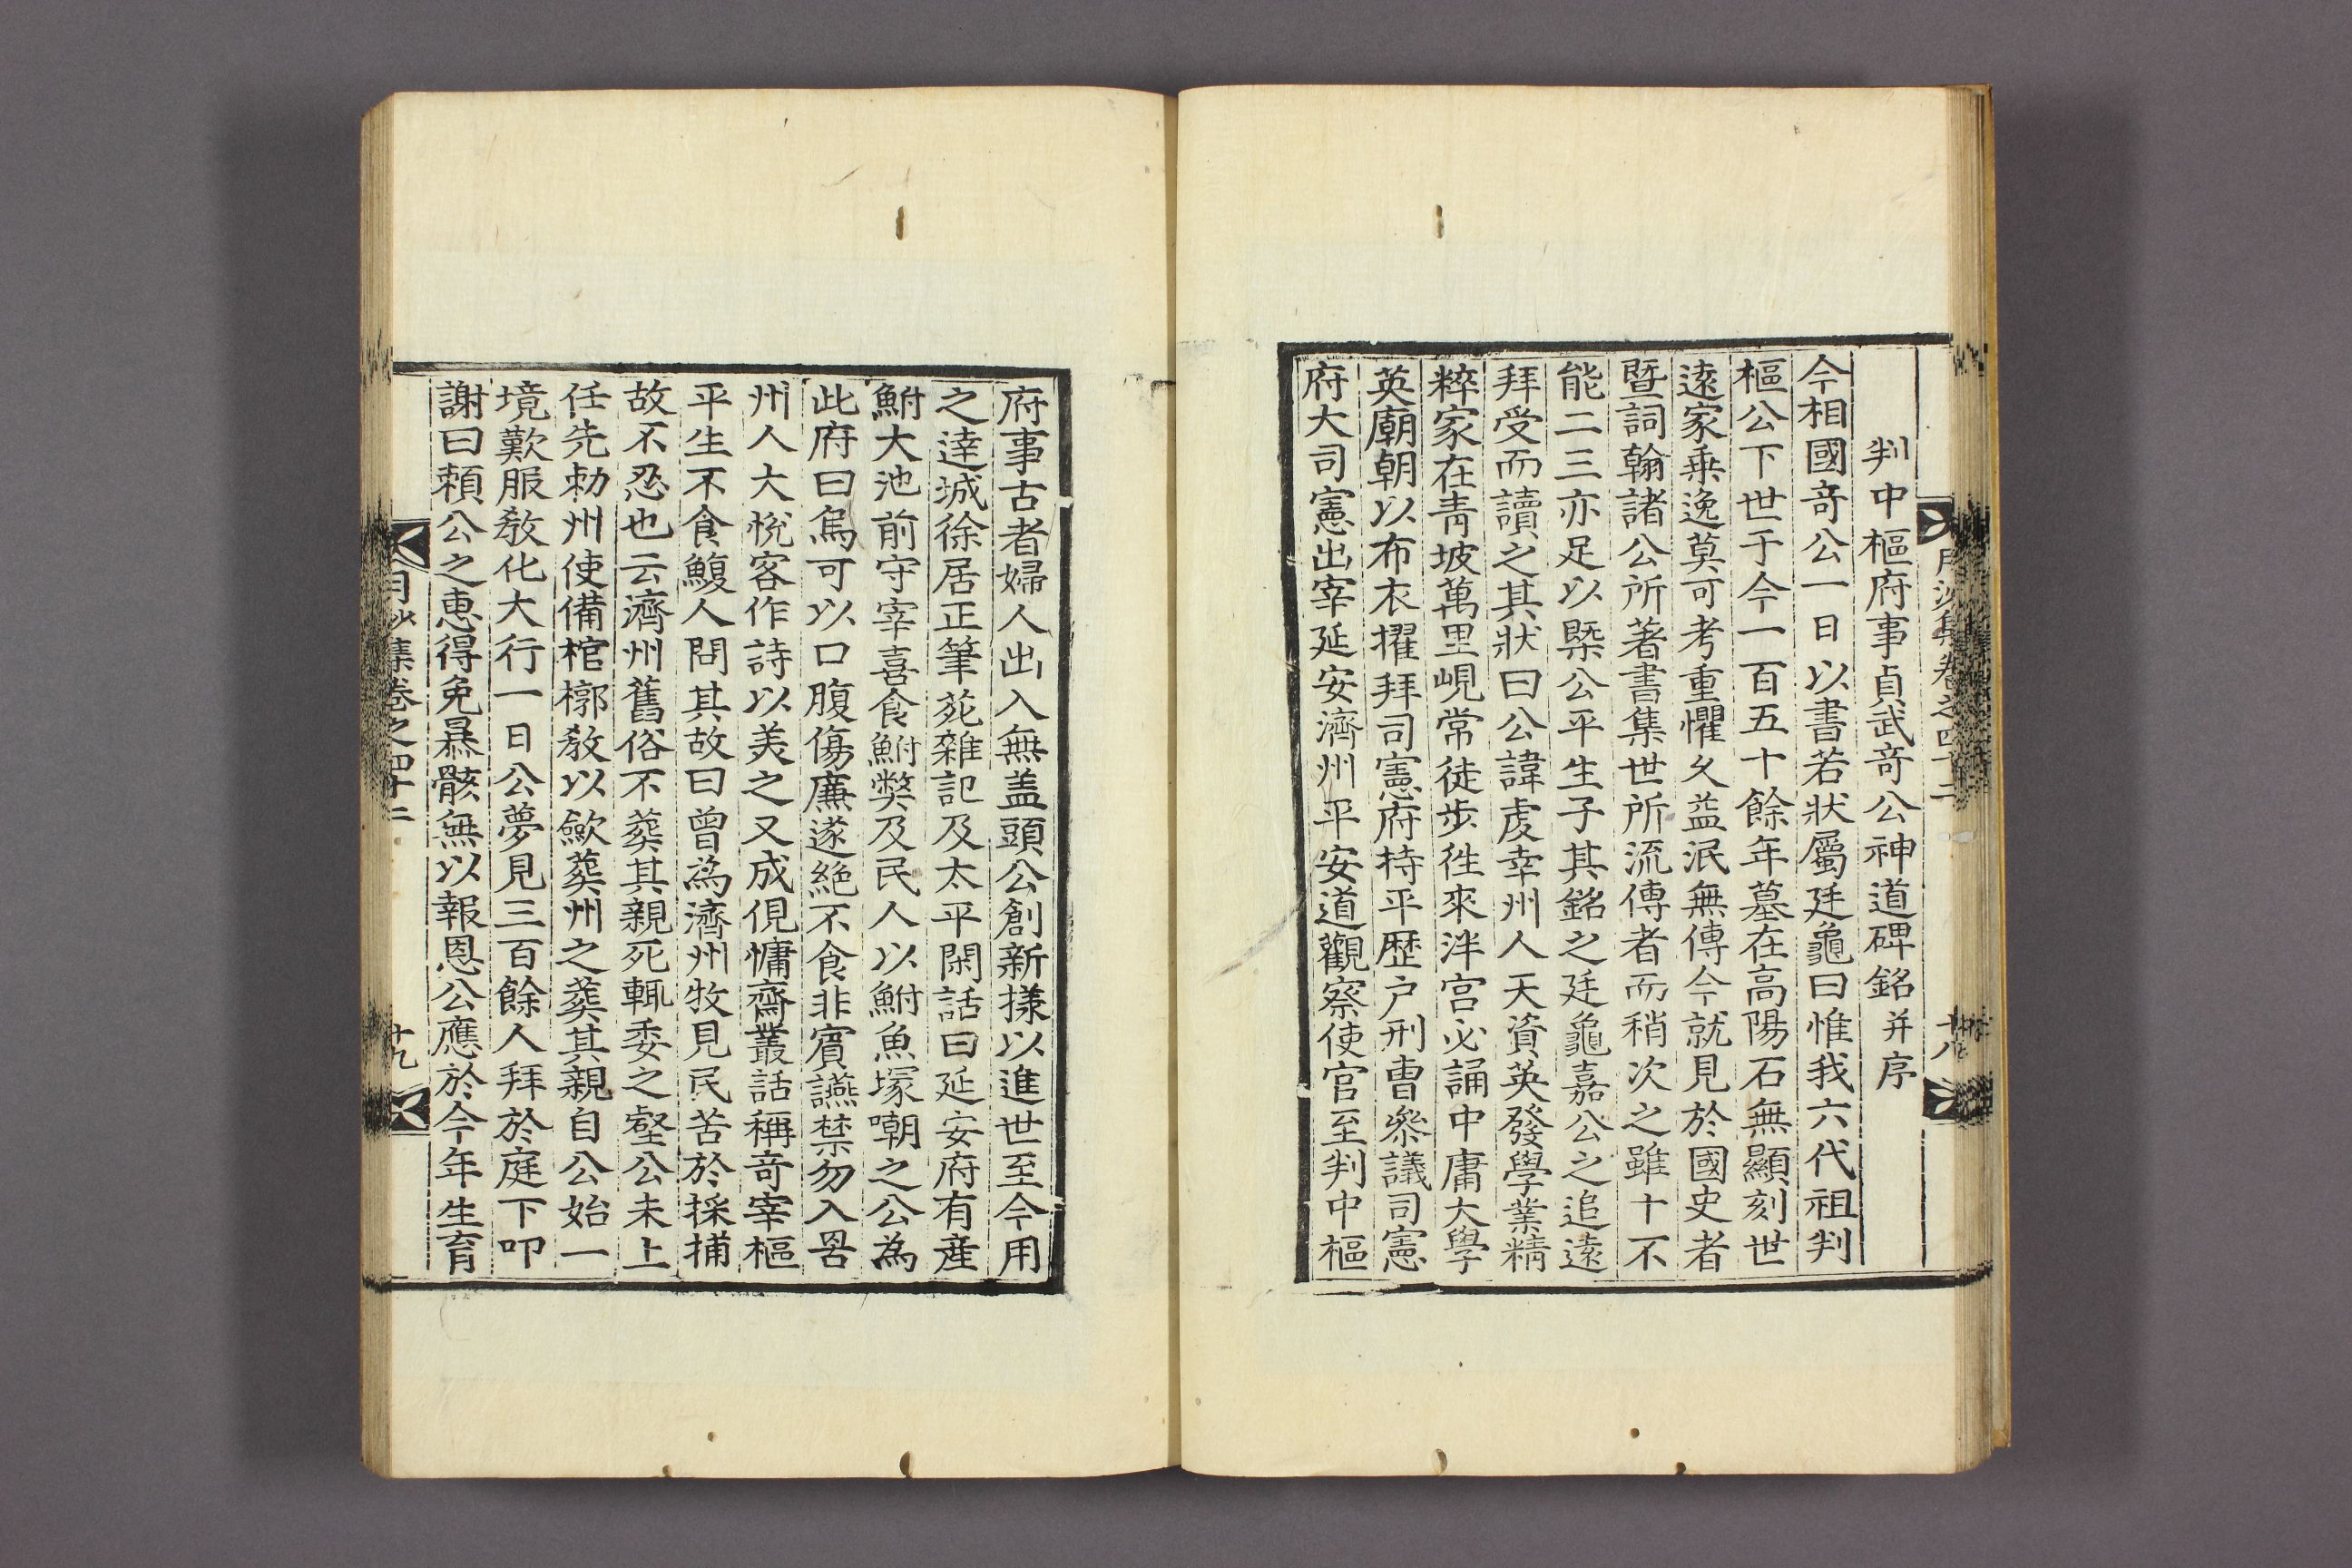 月沙集卷之四十二
十八
判中樞府事貞武奇公神道碑銘 并序
今相國奇公一日以書若狀屬廷龜曰惟我六代祖判
樞公下世于今一百五十餘年墓在高陽石無顯刻世
遠家乗逸莫可考重懼久益泯無傳今就見於國史者
曁詞翰諸公所著書集世所流傳者而稍次之雖十不
能二三亦足以槩公平生子其銘之廷龜嘉公之追遠
拜受而讀之其狀曰公諱虔幸州人天資英發學業精
粹家在靑坡萬里峴常徒步徃來泮宮必誦中庸大學
英廟朝以布衣擢拜司憲府持平歷户刑曹叅議司憲
府大司憲出宰延安濟州平安道觀察使官至判中樞
府事古者婦人出入無盖頭公創新㨾以進世至今用
之達城徐居正筆苑雜記及太平閑話曰延安府有産
鮒大池前守宰喜食鮒弊及民人以鮒魚塚嘲之公為
此府曰烏可以口腹傷廉遂絶不食非賓讌禁勿入罟
州人大悅客作詩以美之又成俔慵齋叢話稱奇宰樞
平生不食鰒人問其故曰曾為濟州牧見民苦於採捕
故不忍也云濟州舊俗不葬其親死輒委之壑公未上
任先勑州使備棺槨敎以歛葬州之葬其親自公始一
境歎服敎化大行一日公夢見三百餘人拜於庭下叩
謝曰頼公之恵得免暴骸無以報恩公應於今年生育
月沙集卷之四十二
十九